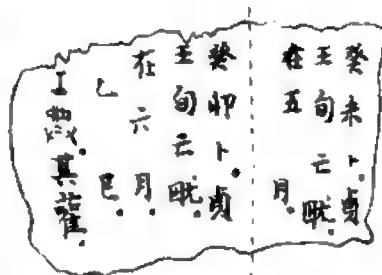 癸未卜.貞
王旬亡畎.
在五月.
癸卯卜.貞
王旬亡畎.
在六月.
乙巳.
工其.